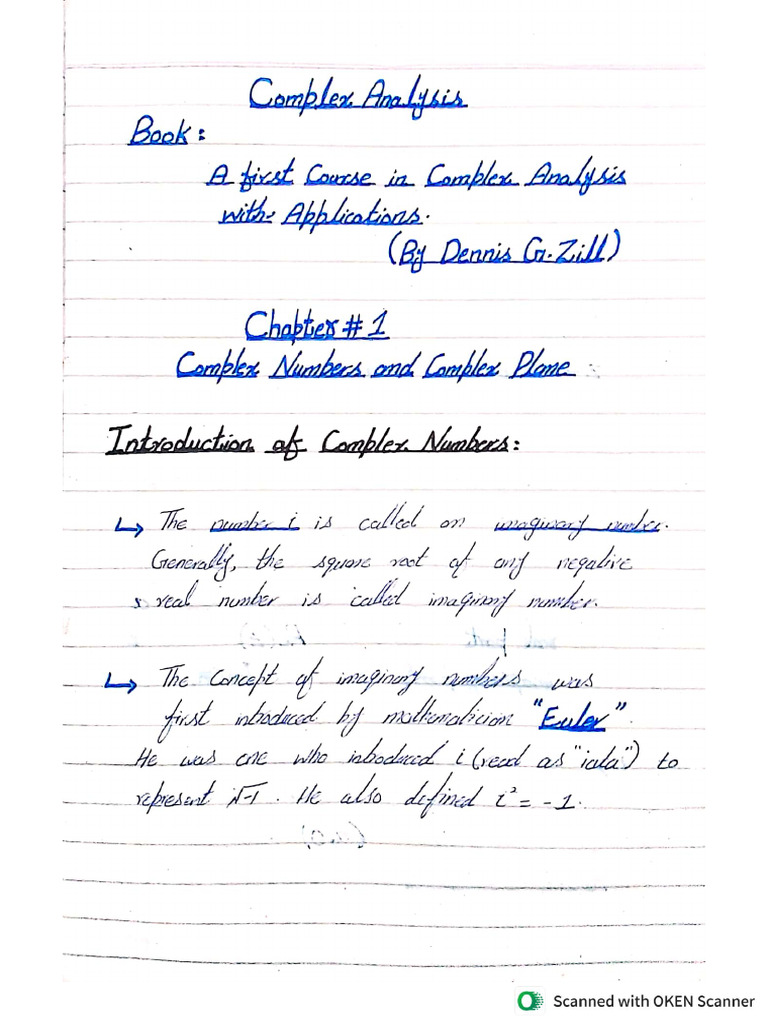 Complex Analysis
Book:
A first Course in Complex Analysis
with Applications.
(By Dennis G. Zill)
Chapter # 1
Complex Numbers and Complex Plane
Introduction of Complex Numbers:
↳ The number i is called an imaginary number.
Generally, the square root of any negative
real number is called imaginary number.
↳ The concept of imaginary numbers was
first introduced by mathematician "Euler".
He was one who introduced i (read as "iota") to
represent √-1. He also defined i² = -1.
Scanned with OKEN Scanner